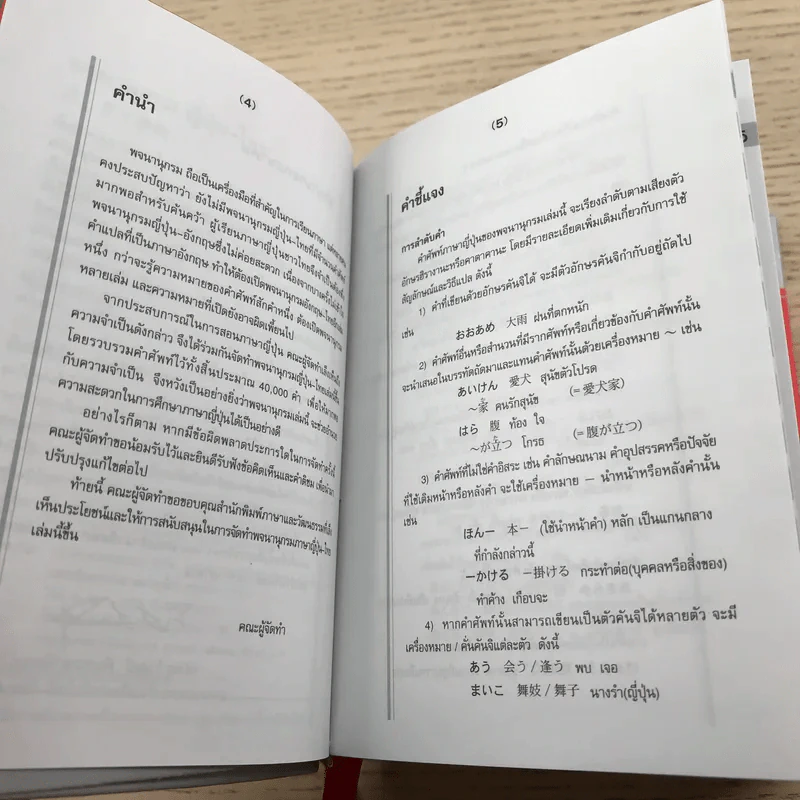 (4)
คำนำ
พจนานุกรม ถือเป็นเครื่องมือที่สำคัญในการเรียนภาษา
คงประสบปัญหาว่า ยังไม่มีพจนานุกรมญี่ปุ่น-ไทยที่มีจำนวนคำ
มากพอสำหรับค้นคว้า ผู้เรียนภาษาญี่ปุ่นชาวไทยจึงจำเป็นต้อง
พจนานุกรมญี่ปุ่น-อังกฤษซึ่งไม่ค่อยสะดวก เนื่องจาก
คำแปลที่เป็นภาษาอังกฤษ ทำให้ต้องเปิดพจนานุกรมอังกฤษ-ไทย
หนึ่ง กว่าจะรู้ความหมายของคำศัพท์สักคำหนึ่ง ต้องเปิดพจนานุกรม
หลายเล่ม และความหมายที่เปิดยังอาจผิดเพี้ยนไป
จากประสบการณ์ในการสอนภาษาญี่ปุ่น คณะผู้จัดทำ
ความจำเป็นดังกล่าว จึงได้ร่วมกันจัดทำพจนานุกรมญี่ปุ่น-ไทย
โดยรวบรวมคำศัพท์ไว้ทั้งสิ้นประมาณ 40,000 คำ เพื่อให้
กับความจำเป็น จึงหวังเป็นอย่างยิ่งว่าพจนานุกรมเล่มนี้ จะช่วย
ความสะดวกในการศึกษาภาษาญี่ปุ่นได้เป็นอย่างดี
อย่างไรก็ตาม หากมีข้อผิดพลาดประการใดในการจัดทำครั้งนี้
คณะผู้จัดทำขอน้อมรับไว้และยินดีรับฟังข้อคิดเห็นและคำติชม
ปรับปรุงแก้ไขต่อไป
ท้ายนี้ คณะผู้จัดทำขอขอบคุณสำนักพิมพ์ภาษาและวัฒนธรรม
เห็นประโยชน์และให้การสนับสนุนในการจัดทำพจนานุกรมภาษาญี่ปุ่น-ไทย
เล่มนี้ขึ้น
คณะผู้จัดทำ
(5)
คำชี้แจง
การลำดับคำ
คำศัพท์ภาษาญี่ปุ่นของพจนานุกรมเล่มนี้ จะเรียงลำดับตามเสียงตัว
อักษรฮิรางานะหรือคาตาคานะ โดยมีรายละเอียดเพิ่มเติมเกี่ยวกับการใช้
สัญลักษณ์และวิธีแปล ดังนี้
1) คำที่เขียนด้วยอักษรคันจิได้ จะมีตัวอักษรคันจิกำกับอยู่ถัดไป
เช่น
おおあめ 大雨 ฝนที่ตกหนัก
2) คำศัพท์อื่นหรือสำนวนที่มีรากศัพท์หรือเกี่ยวข้องกับคำศัพท์นั้น
จะนำเสนอในบรรทัดถัดมาและแทนคำศัพท์นั้นด้วยเครื่องหมาย ~ เช่น
あいけん 愛犬 สุนัขตัวโปรด
~家 คนรักสุนัข (=愛犬家)
はら 腹 ท้อง ใจ
~が立つ โกรธ (=腹が立つ)
3) คำศัพท์ที่ไม่ใช่คำอิสระ เช่น คำลักษณนาม คำอุปสรรคหรือปัจจัย
ที่ใช้เติมหน้าหรือหลังคำ จะใช้เครื่องหมาย – นำหน้าหรือหลังคำนั้น
เช่น
ほん– 本– (ใช้นำหน้าคำ) หลัก เป็นแกนกลาง
ที่กำลังกล่าวนี้
–かける –掛ける กระทำต่อ(บุคคลหรือสิ่งของ)
ทำค้าง เกือบจะ
4) หากคำศัพท์นั้นสามารถเขียนเป็นตัวคันจิได้หลายตัว จะมี
เครื่องหมาย / คั่นคันจิแต่ละตัว ดังนี้
あう 会う / 逢う พบ เจอ
まいこ 舞妓 / 舞子 นางรำ(ญี่ปุ่น)